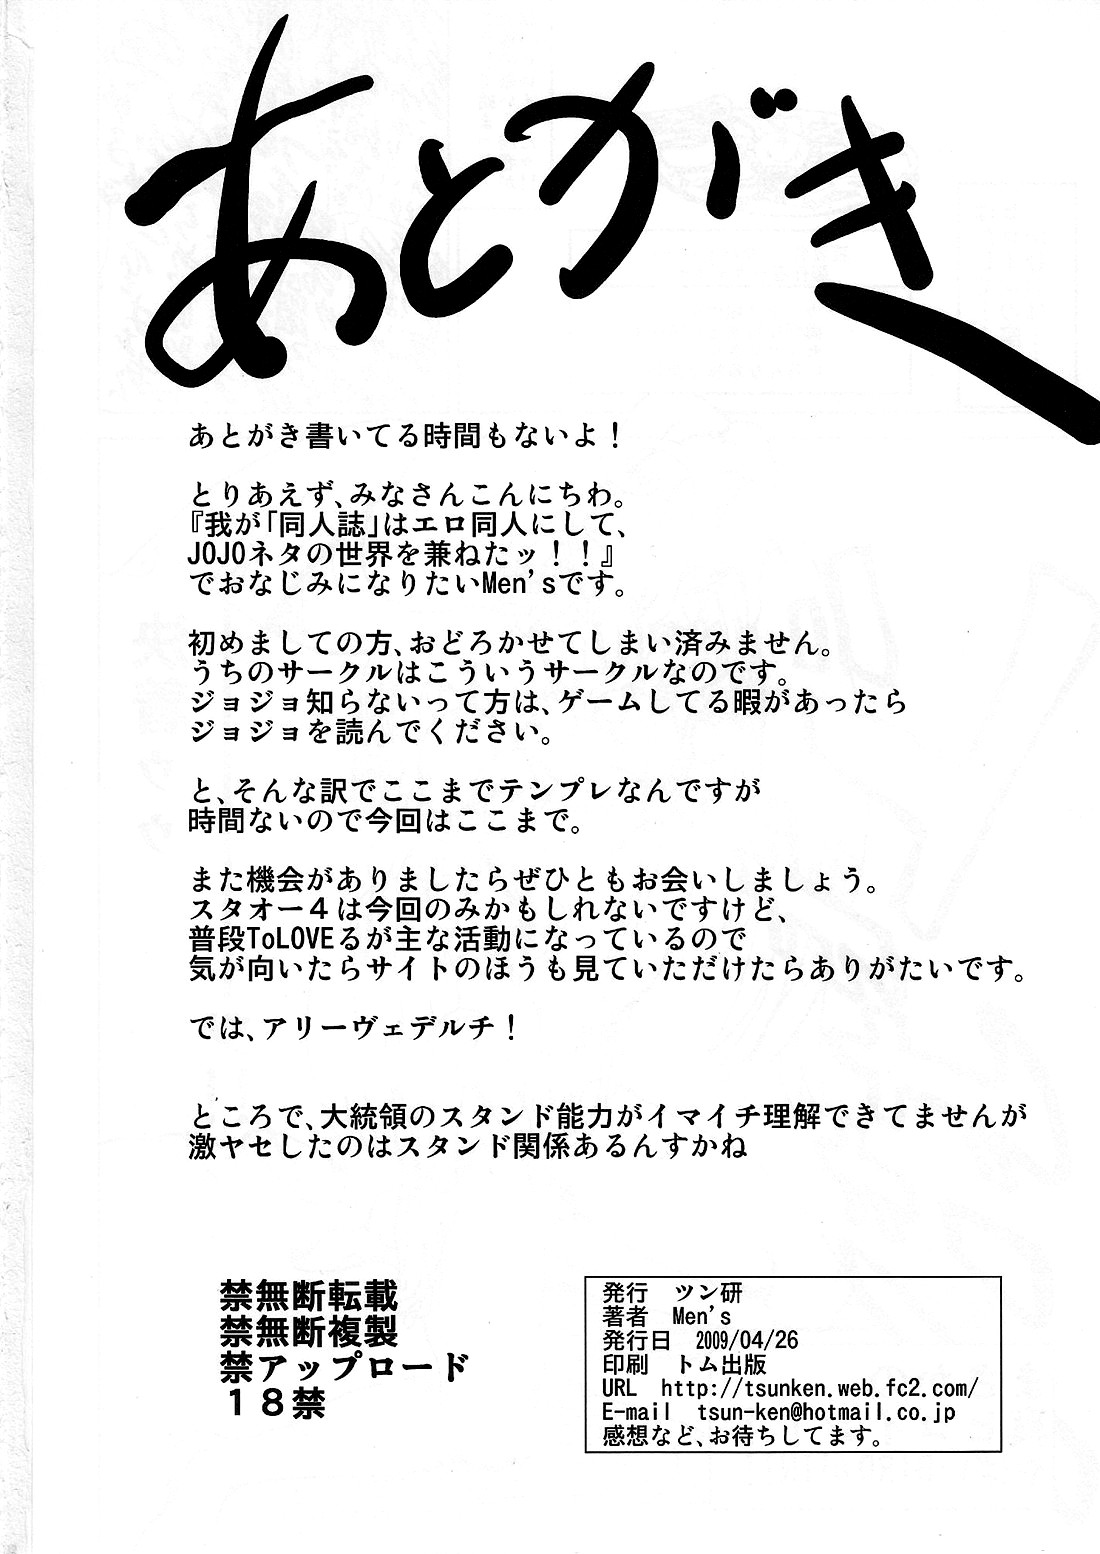 あとがき
あとがき書いてる時間もないよ！
とりあえず、みなさんこんにちわ。
『我が「同人誌」はエロ同人にして、
JOJOネタの世界を兼ねたッ！！』
でおなじみになりたいMen'sです。
初めましての方、おどろかせてしまい済みません。
うちのサークルはこういうサークルなのです。
ジョジョ知らないって方は、ゲームしてる暇があったら
ジョジョを読んでください。
と、そんな訳でここまでテンプレなんですが
時間ないので今回はここまで。
また機会がありましたらぜひともお会いしましょう。
スタオー４は今回のみかもしれないですけど、
普段ToLOVEるが主な活動になっているので
気が向いたらサイトのほうも見ていただけたらありがたいです。
では、アリーヴェデルチ！
ところで、大統領のスタンド能力がイマイチ理解できてませんが
激ヤセしたのはスタンド関係あるんすかね
禁無断転載
禁無断複製
禁アップロード
１８禁
発行　ツン研
著者　Men's
発行日　2009/04/26
印刷　トム出版
URL　http://tsunken.web.fc2.com/
E-mail　tsun-ken@hotmail.co.jp
感想など、お待ちしてます。